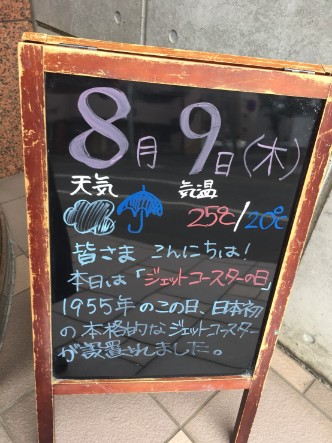 8月9日(木)
天気 気温
25℃/20℃
皆さま こんにちは!
本日は「ジェットコースターの日」
1955年のこの日、日本初
の本格的なジェットコースター
が設置されました。